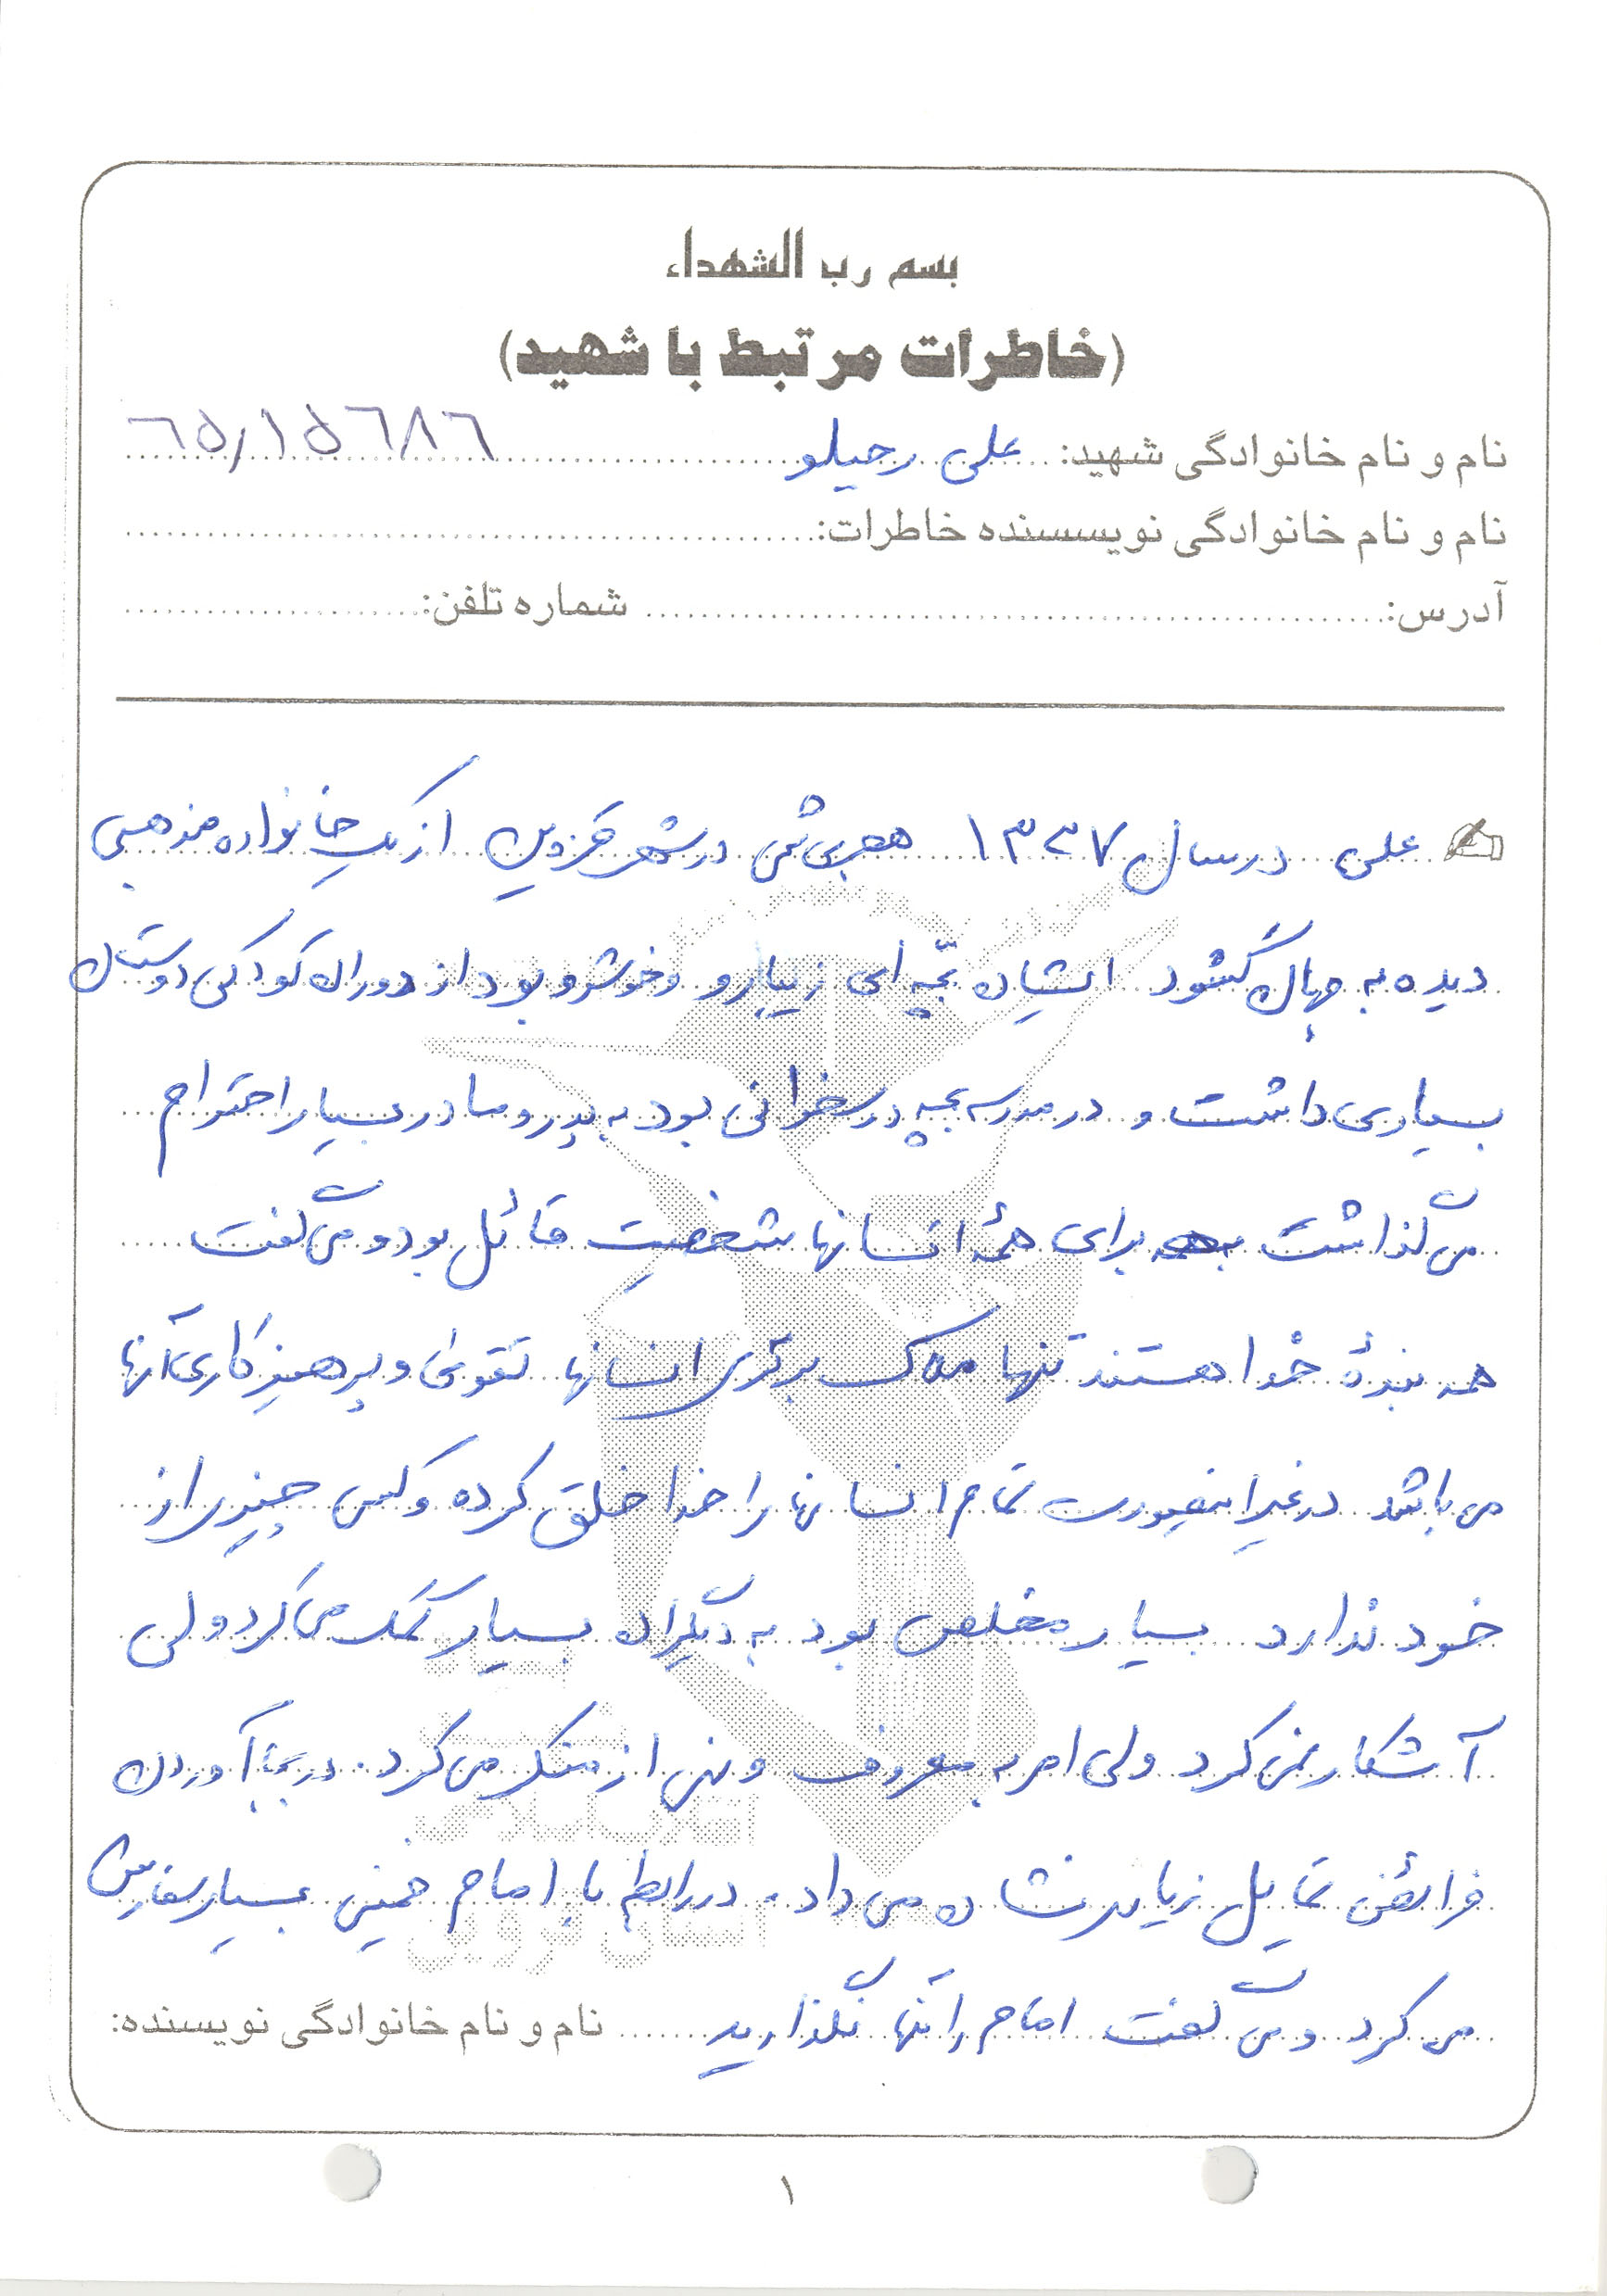 بسم رب الشهداء
(خاطرات مرتبط با شهید)
نام و نام خانوادگی شهید: علی رحیلو ٦٥/١٥٦٨٦
نام و نام خانوادگی نویسنده خاطرات:
آدرس: شماره تلفن:
علی در سال ۱۳۳۷ هجری شمسی در شهر قزوین از یک خانواده مذهبی
دیده به جهان گشود ایشان بچه ای زیبارو و خوشرو بود از دوران کودکی دوستان
بسیاری داشت و در مدرسه بچه درسخوانی بود به پدر و مادر بسیار احترام
می گذاشت برای همهٔ انسانها شخصیت قائل بود و می گفت
همه بندهٔ خدا هستند تنها ملاک برتری انسانها تقوی و پرهیزکاری آنها
می باشد در غیر اینصورت تمام انسانها را خدا خلق کرده و کسی چیزی از
خود ندارد بسیار مخلص بود به دیگران بسیار کمک می کرد ولی
آشکار نمی کرد ولی امر به معروف و نهی از منکر می کرد. در بجا آوردن
فرائض تمایل زیادی نشان می داد. در رابطه با امام خمینی بسیار سفارش
می کرد و می گفت امام را تنها نگذارید نام و نام خانوادگی نویسنده:
بنیاد
شهید
انقلاب اسلامی
استان قزوین
۱